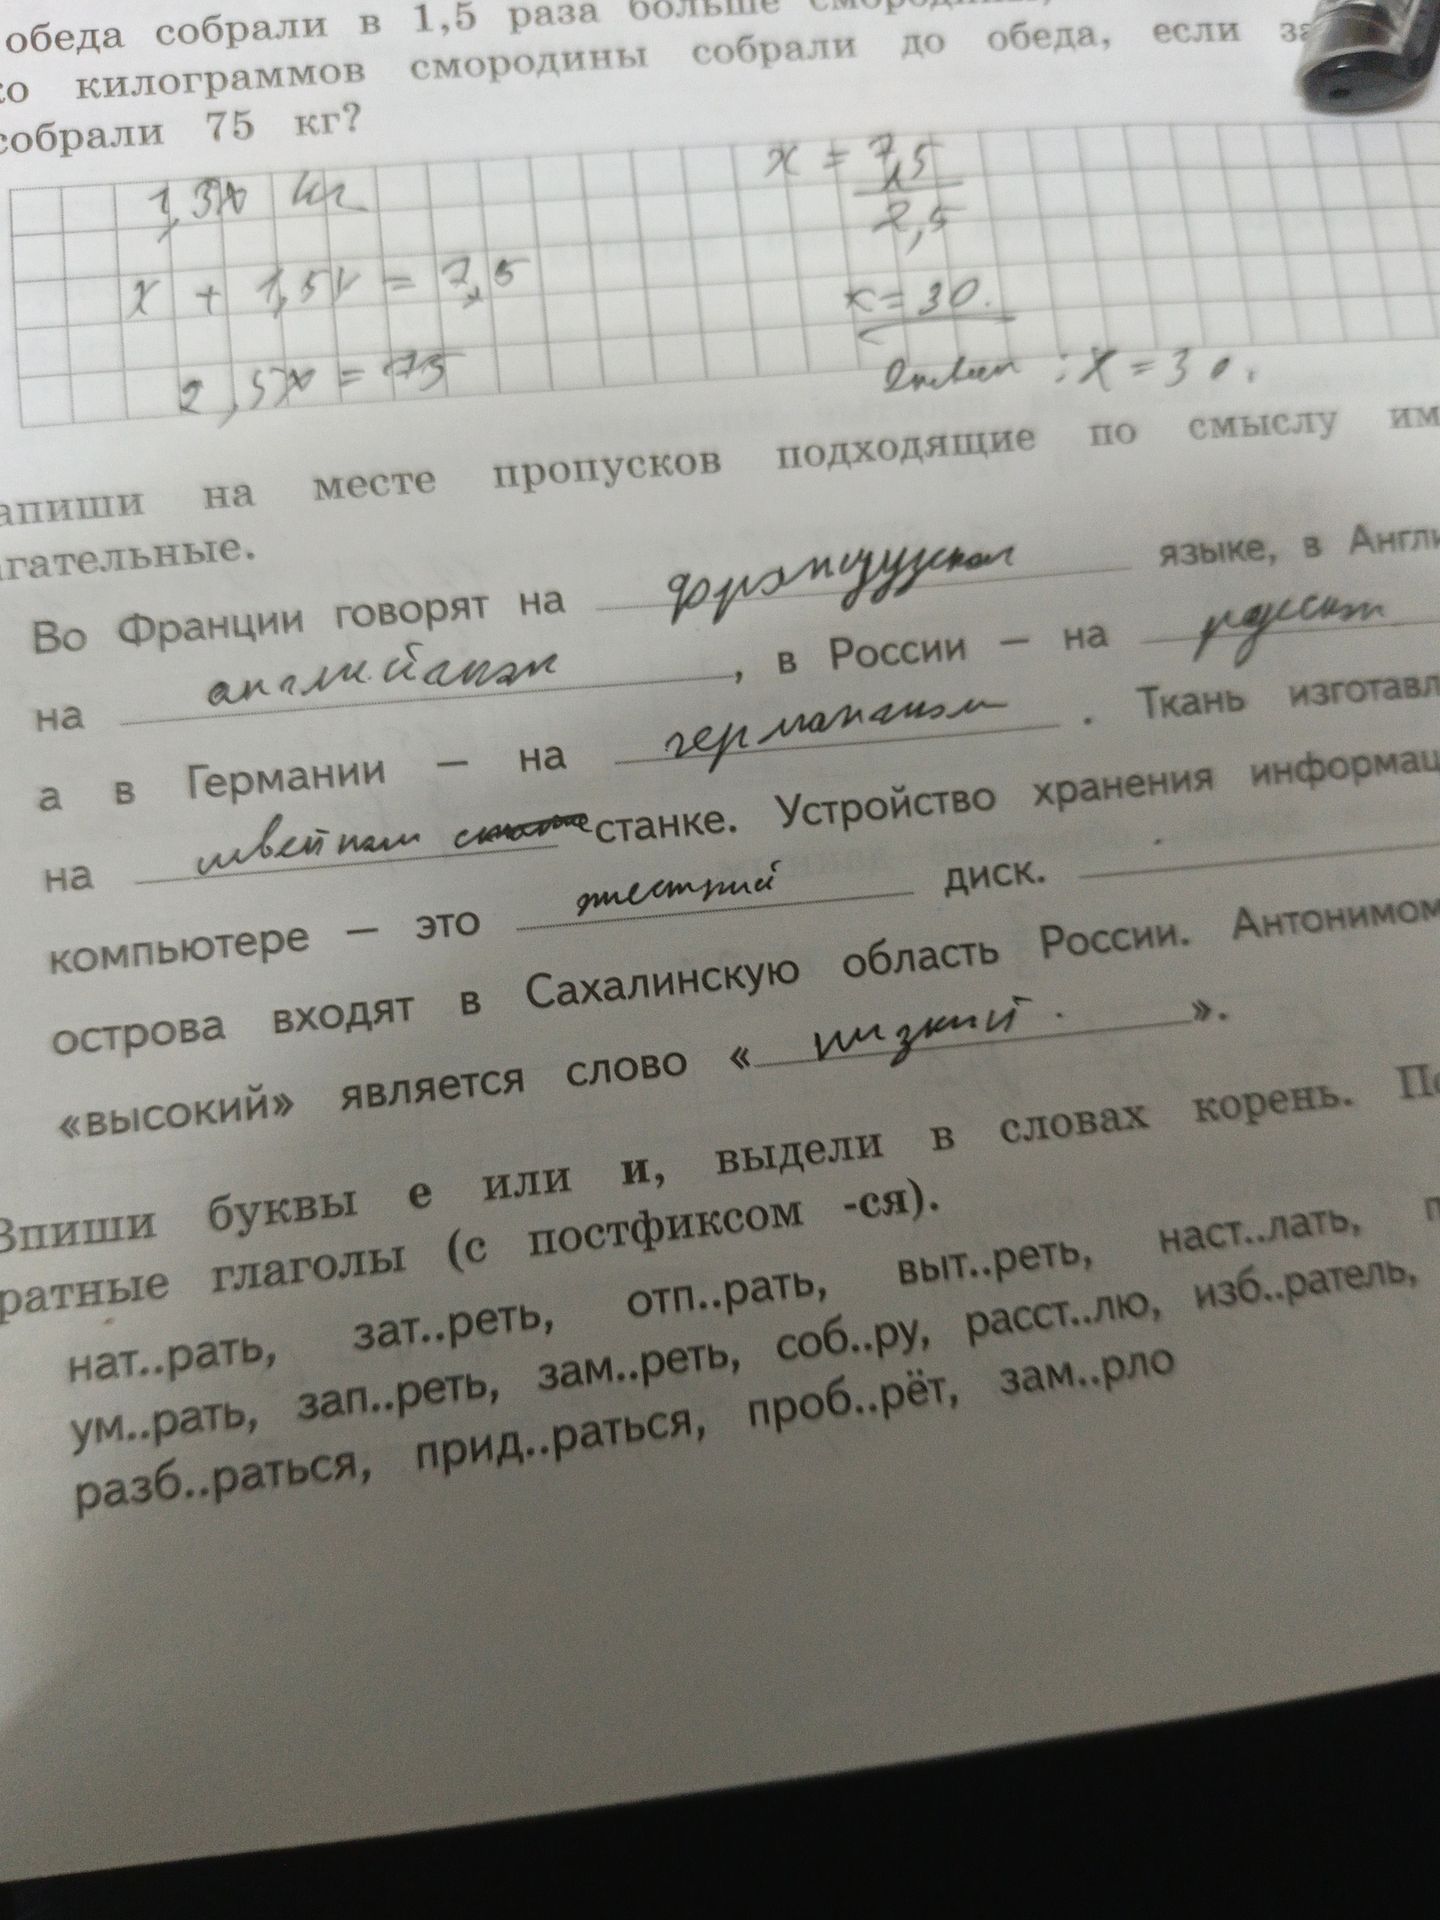 обеда собрали в 1,5 раза больше
килограммов смородины собрали до обеда, если за
собрали 75 кг?
x = 7,5
кг
2,5
x + 1,5x = 7,5
x = 30.
2,5x = 75
Ответ : x = 30.
апиши на месте пропусков подходящие по смыслу им
агательные.
Во Франции говорят на французском языке, в Англи
на английском, в России – на русском
а в Германии – на германском. Ткань изготавл
на швейном станке. Устройство хранения информац
компьютере – это жесткий диск.
острова входят в Сахалинскую область России. Антонимом
«высокий» является слово «низкий.».
Впиши буквы е или и, выдели в словах корень. По
ратные глаголы (с постфиксом -ся).
нат..рать, зат..реть, отп..рать, выт..реть, наст..лать, п
ум..рать, зап..реть, зам..реть, соб..ру, расст..лю, изб..ратель,
разб..раться, прид..раться, проб..рёт, зам..рло